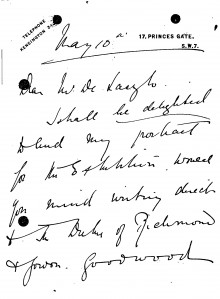 TELEPHONE
KENSINGTON
17, PRINCES GATE,
S.W.7.
May 10th
Dear Mr. De Laszlo
I shall be delighted
to lend my portrait
for the Exhibition would
you mind writing direct
to The Duke of Richmond
& Gordon. Goodwood